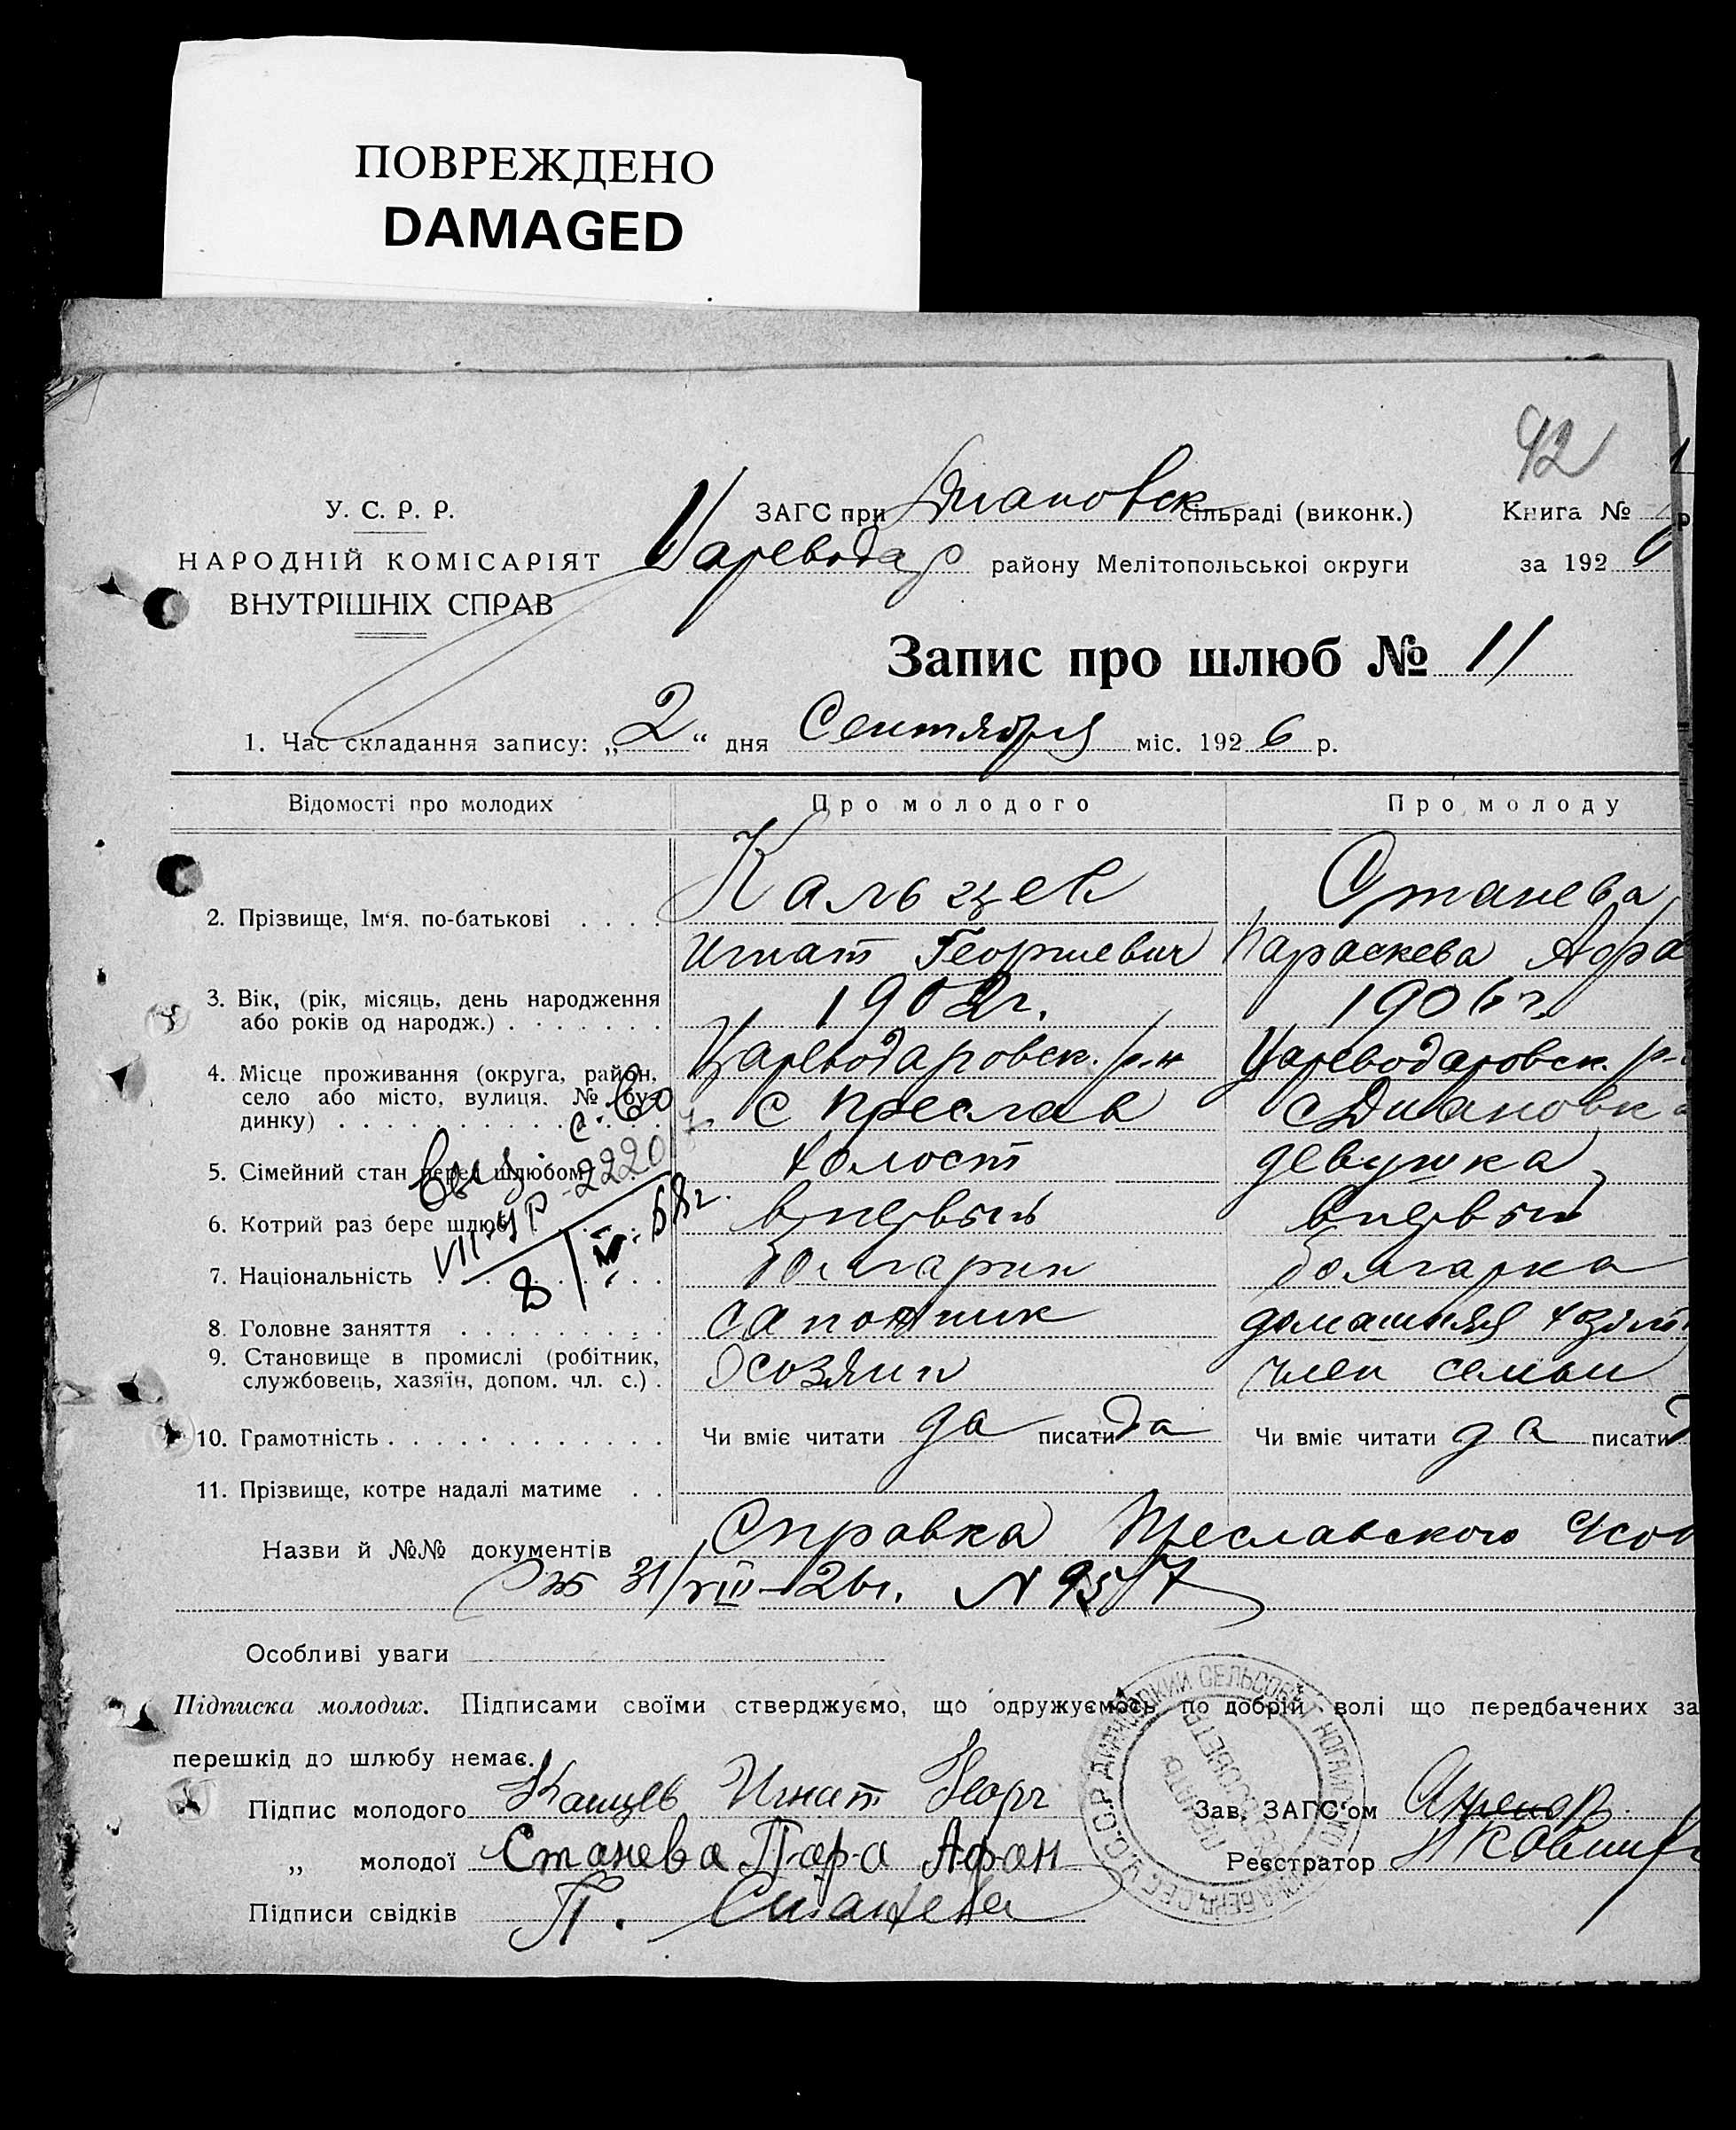 ПОВРЕЖДЕНО
DAMAGED
42
У. С. Р. Р.
НАРОДНІЙ КОМІСАРІЯТ
ВНУТРІШНІХ СПРАВ
ЗАГС при Диановск сільраді (виконк.)
Царевода р району Мелітопольської округи
Книга №
за 192
Запис про шлюб № 11
1. Час складання запису: „2“ дня Сентября міс. 1926 р.
Відомості про молодих
Про молодого
Про молоду
2. Прізвище, Ім'я, по-батькові
Кальчев
Игнат Георгиевич
Станева
Параскева Афа
3. Вік, (рік, місяць, день народження
або років од народж.)
1902г.
1906г.
4. Місце проживання (округа, район,
село або місто, вулиця, № бу-
динку)
Цареводаровск. р-н
с Преслав
Цареводаровск. р-
с Диановк
5. Сімейний стан перед шлюбом
холост
девушка
6. Котрий раз бере шлюб
впервый
впервый
VII-УР-2220
8/IV-68г.
7. Національність
болгарин
болгарка
8. Головне заняття
сапожник
домашняя хозяй
9. Становище в промислі (робітник,
службовець, хазяїн, допом. чл. с.)
Хозяин
член семьи
10. Грамотність
Чи вміє читати да писати да
Чи вміє читати да писати
11. Прізвище, котре надалі матиме
Назви й №№ документів
Справка Преславского
от 31/VIII-26г. N 957
Особливі уваги
Підписка молодих. Підписами своїми стверджуємо, що одружуємось по добрій волі що передбачених за
перешкід до шлюбу немає.
Підпис молодого
Игнат Георг
Зав. ЗАГС'ом
„ молодої Станева Пара Афан
Реєстратор
Підписи свідків П. Станева
У.С.С.Р. ДИАНОВСКИЙ СЕЛЬСОВЕТ НОГАЙСКОГО
ПЕЧАТЬ